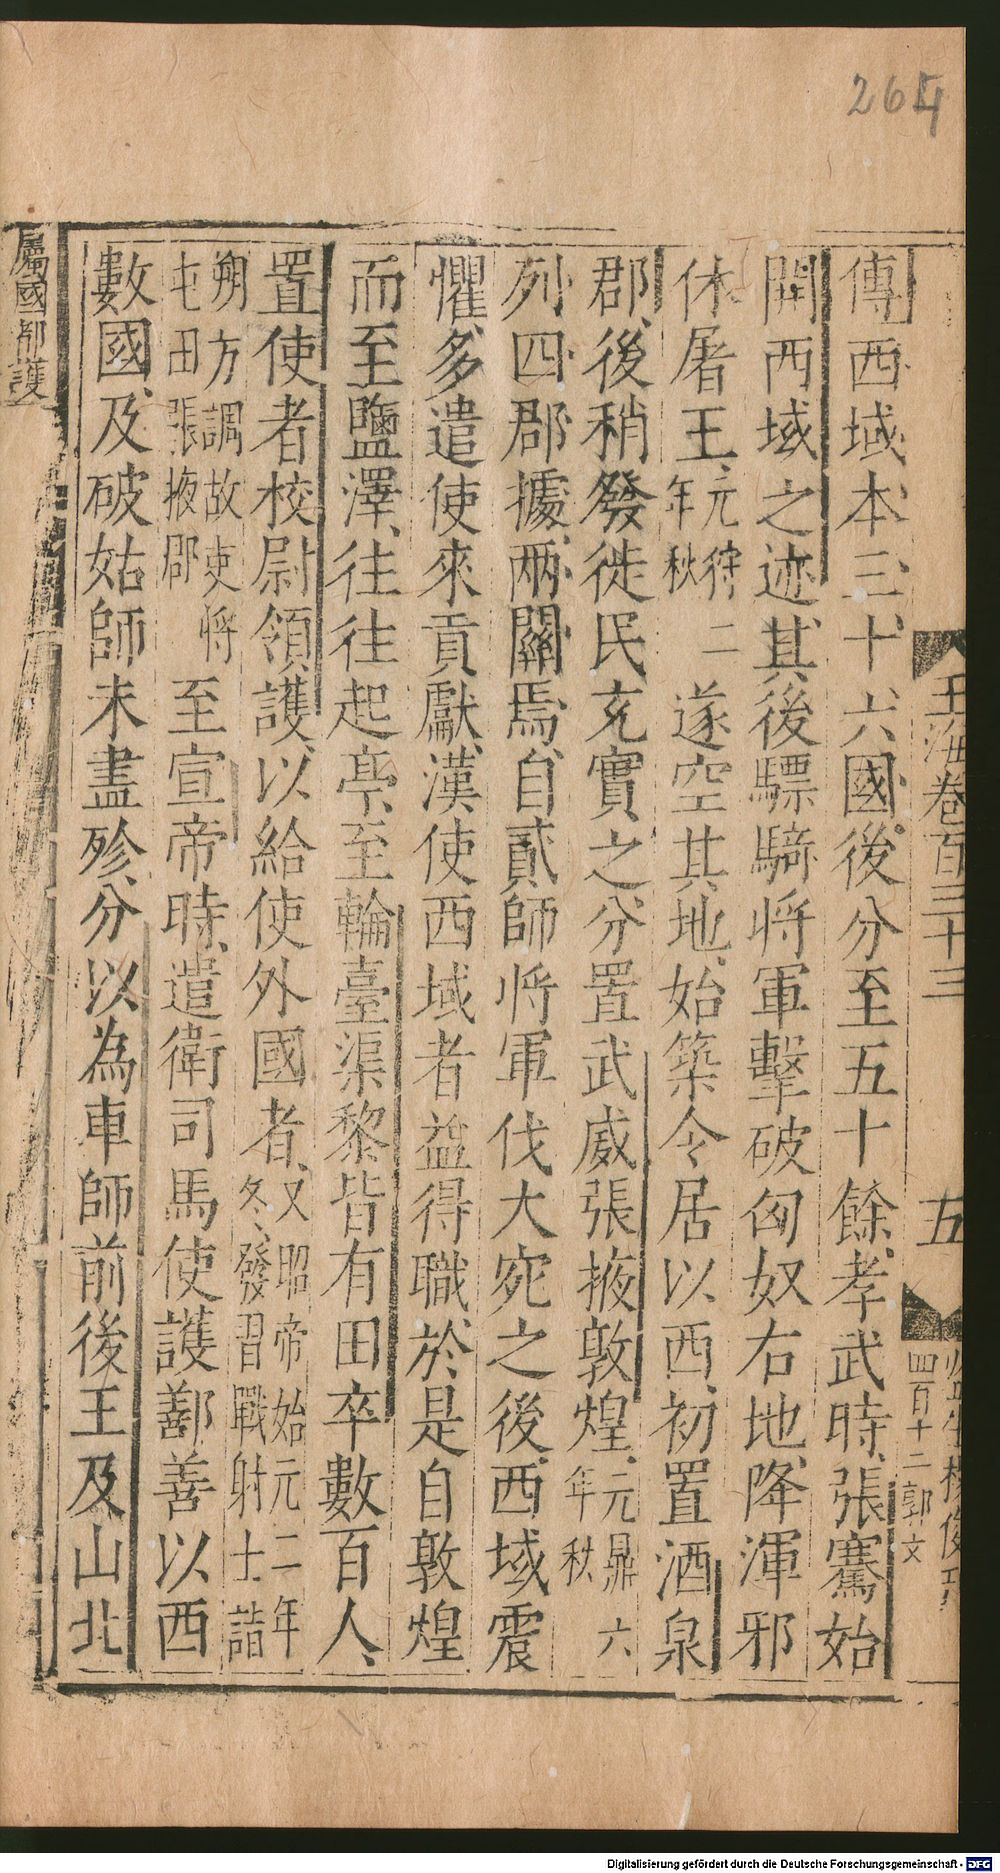 264
玉海卷百三十三
五
四百十二 郭文
傳西域本三十六國後分至五十餘孝武時張騫始
開西域之迹其後驃騎將軍擊破匈奴右地降渾邪
休屠王元狩二年秋遂空其地始築令居以西初置酒泉
郡後稍發徙民充實之分置武威張掖敦煌元鼎六年秋
列四郡據兩關焉自貳師將軍伐大宛之後西域震
懼多遣使來貢獻漢使西域者益得職於是自敦煌
而至鹽澤往往起亭至輪臺渠黎皆有田卒數百人
置使者校尉領護以給使外國者又昭帝始元二年冬發習戰射士詣
朔方調故吏將屯田張掖郡至宣帝時遣衛司馬使護鄯善以西
數國及破姑師未盡殄分以為車師前後王及山北
屬國都護
Digitalisierung gefördert durch die Deutsche Forschungsgemeinschaft - DFG